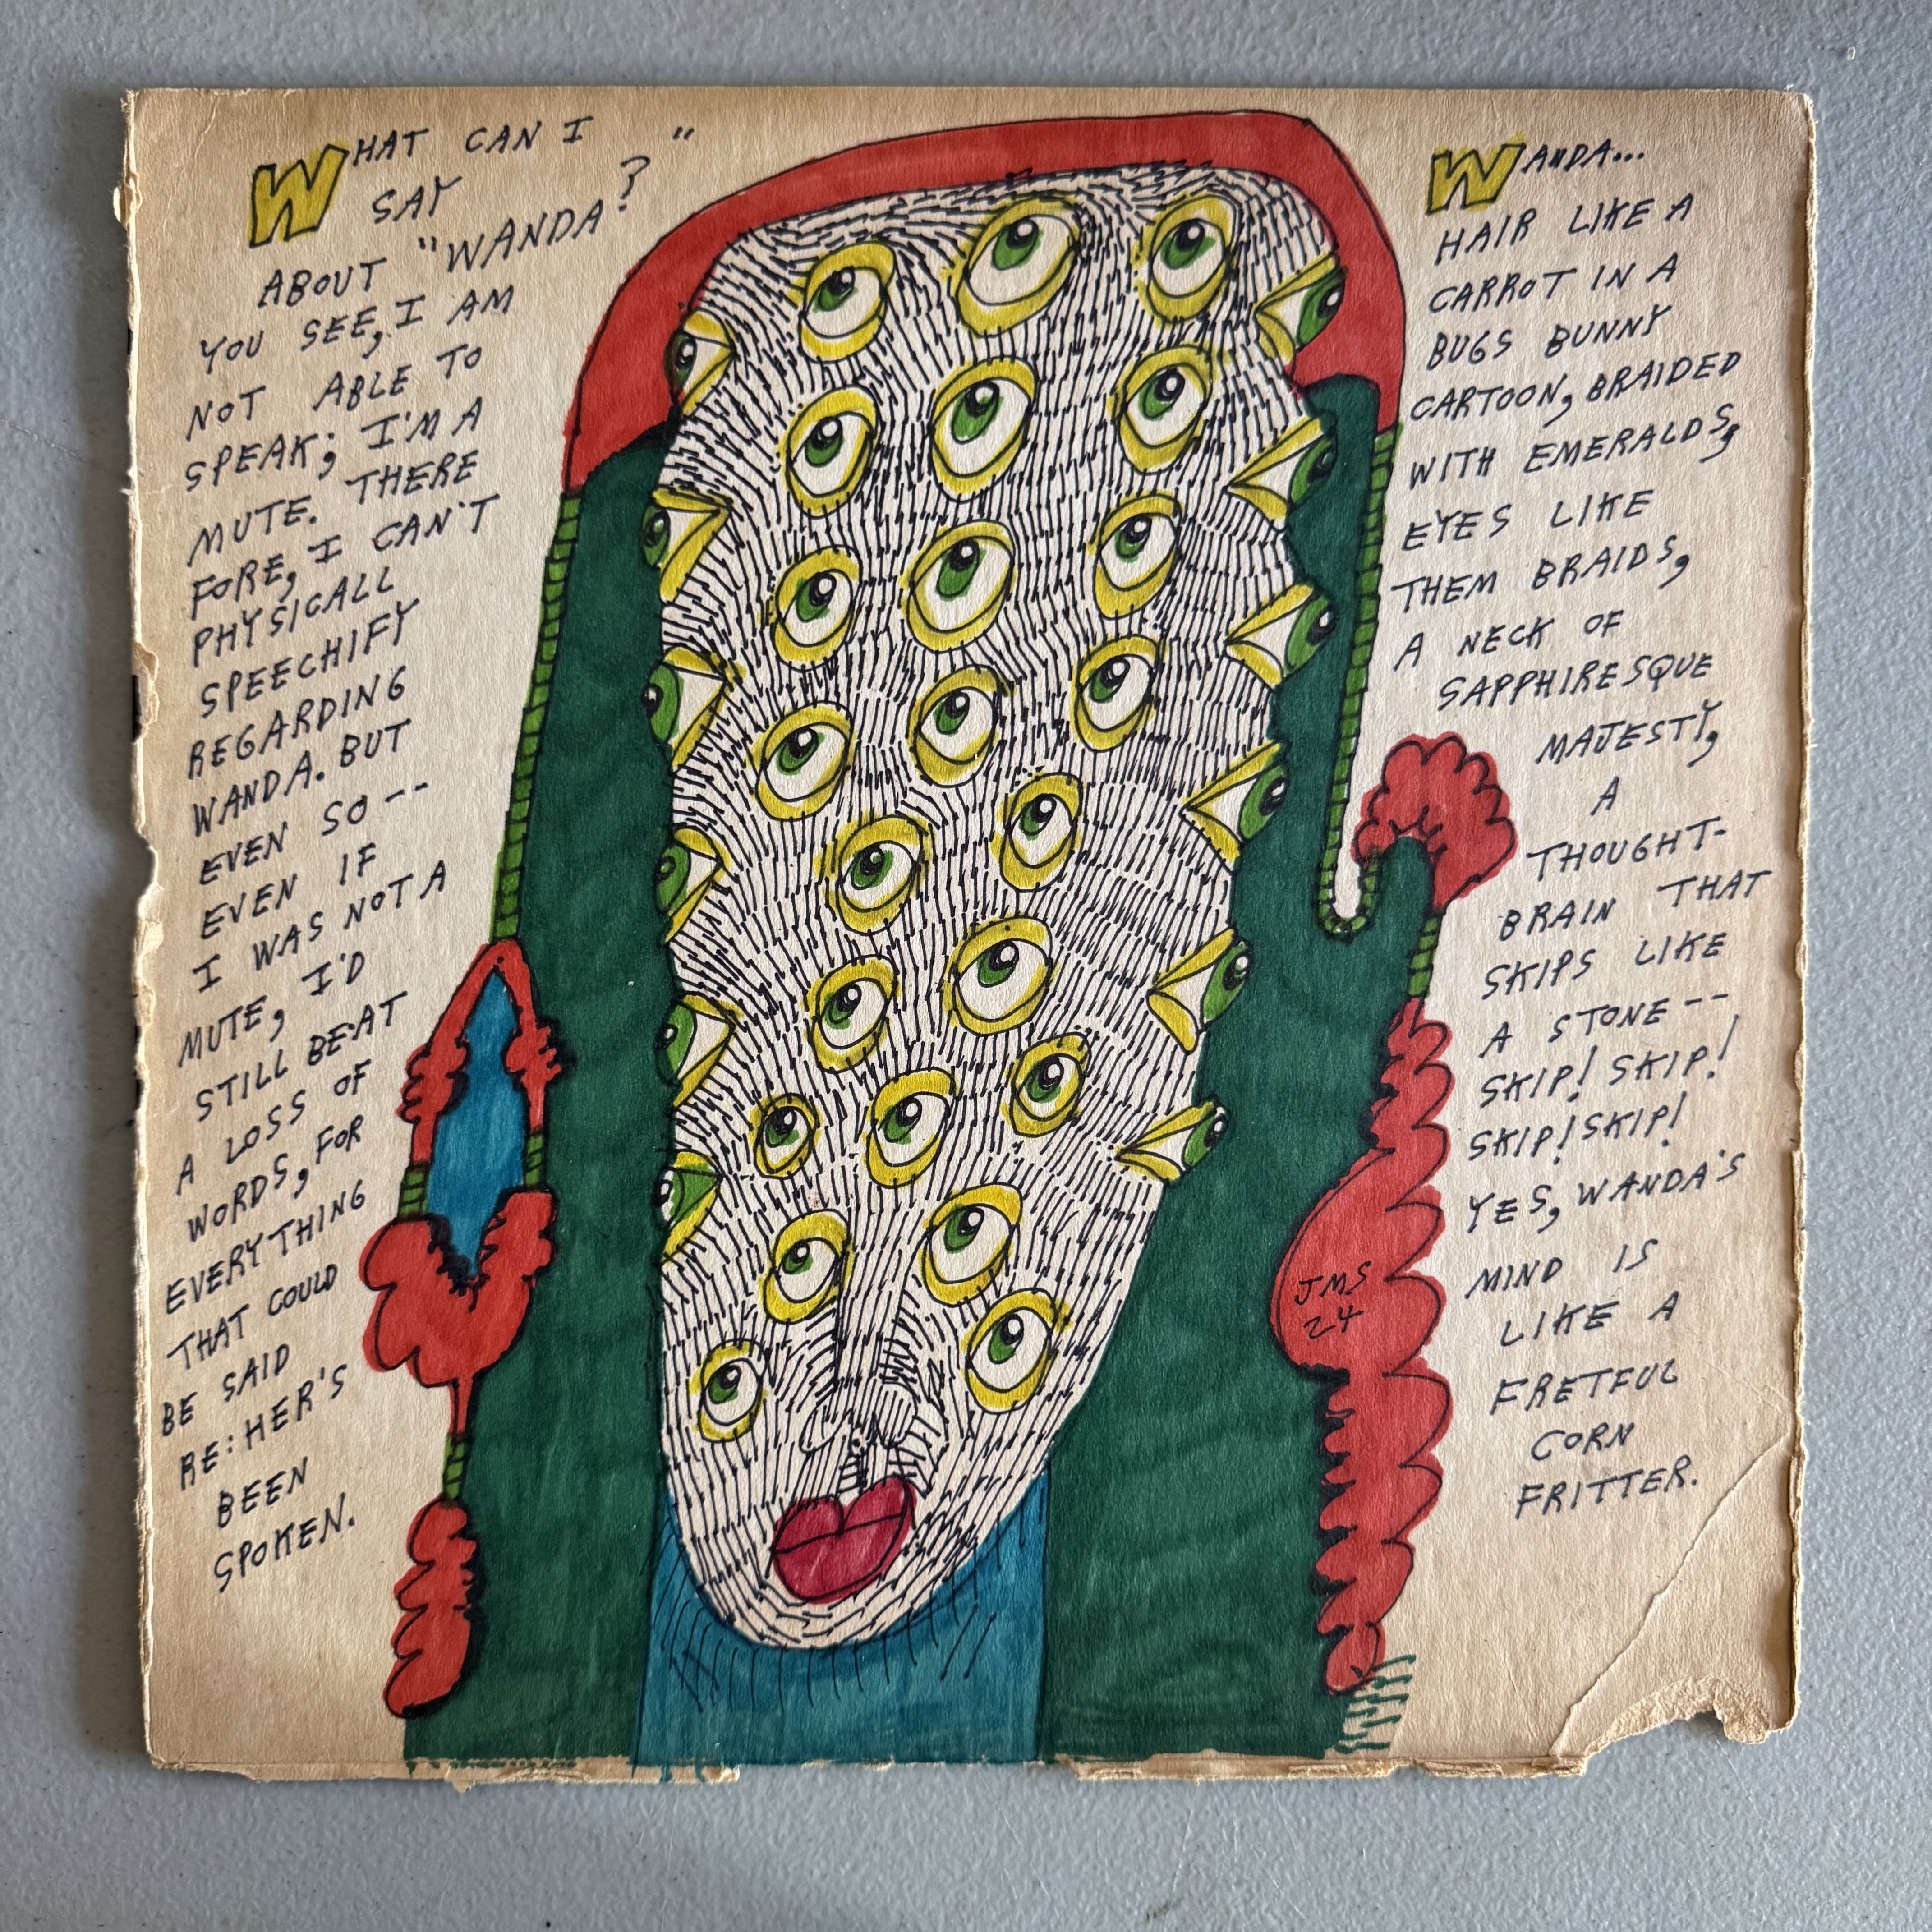 WHAT CAN I
SAY
ABOUT "WANDA?"
YOU SEE, I AM
NOT ABLE TO
SPEAK; I'M A
MUTE. THERE
FORE, I CAN'T
PHYSICALL
SPEECHIFY
REGARDING
WANDA. BUT
EVEN SO--
EVEN IF
I WAS NOT A
MUTE, I'D
STILL BE AT
A LOSS OF
WORDS, FOR
EVERYTHING
THAT COULD
BE SAID
RE: HER'S
BEEN
SPOKEN.
WANDA...
HAIR LIKE A
CARROT IN A
BUGS BUNNY
CARTOON, BRAIDED
WITH EMERALDS,
EYES LIKE
THEM BRAIDS,
A NECK OF
SAPPHIRESQUE
MAJESTY,
A
THOUGHT-
BRAIN THAT
SKIPS LIKE
A STONE--
SKIP! SKIP!
SKIP! SKIP!
YES, WANDA'S
MIND IS
LIKE A
FRETFUL
CORN
FRITTER.
JMS
24